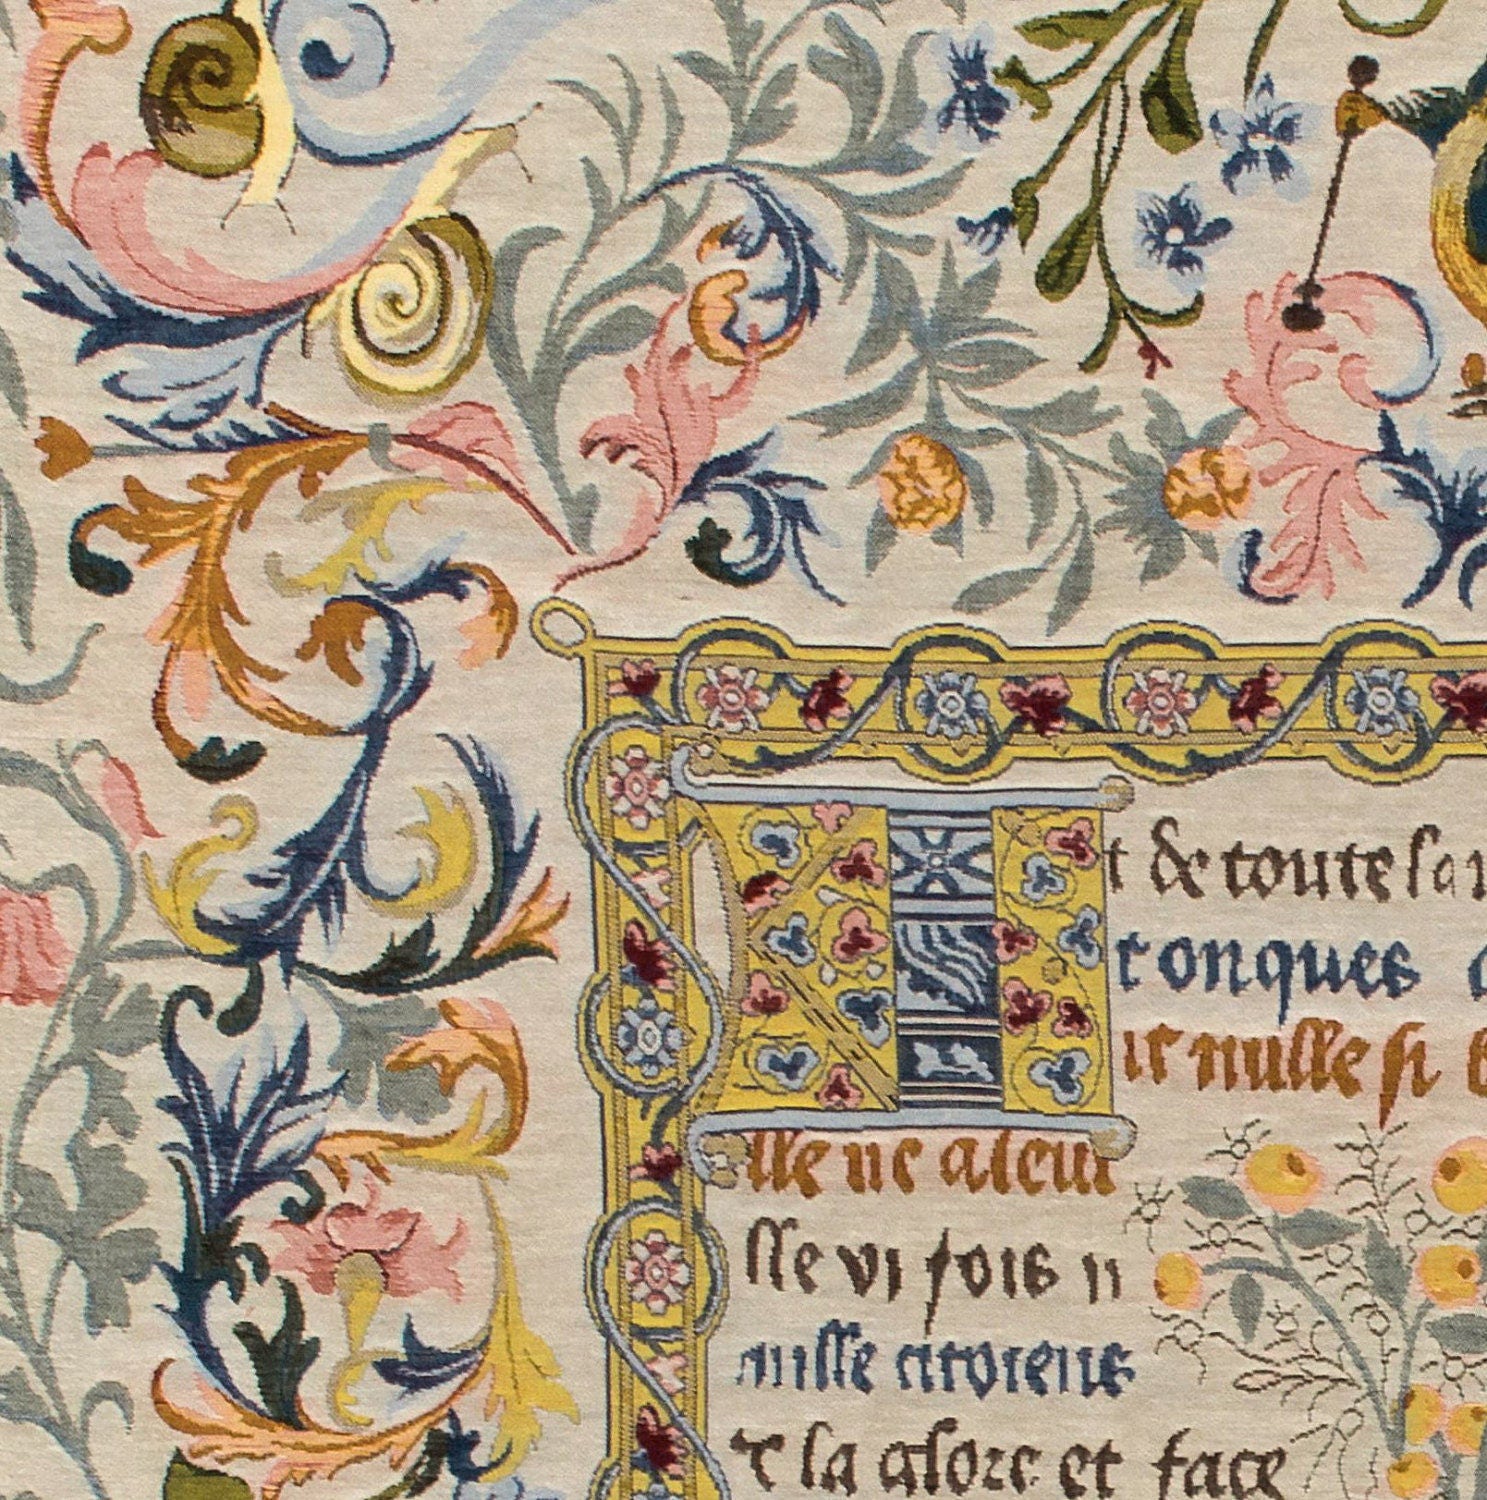 t & toute sa
tonques
it mille si
lle ne a leur
lle vi fois ii
mille citoiens
t la glore et face